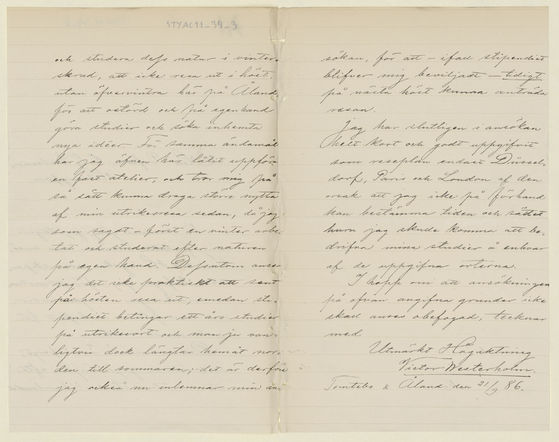 STYAC11_39_3
och studera dess natur i vinter-
skrud, att icke resa ut i höst,
utan öfvervintra här på Åland
för att ostörd och på egen hand
göra studier och söka inhemta
nya idéer. För samma ändamål
har jag äfven här låtit uppföra
en fast atelier, och tror mig på
så sätt kunna draga större nytta
af min utrikesresa sedan, då jag
som sagdt - först en vinter arbe-
tat och studerat efter naturen
på egen hand. Dessutom anser
jag det icke praktiskt att sent
på hösten resa ut, emedan sti-
pendiet betingar ett års studier
på utrikesort och man ju van-
ligtvis dock längtar hemåt nor-
den till sommaren; det är derföre
jag också nu inlemnar min an-
sökan, för att - ifall stipendiet
blifver mig beviljadt - tidigt
på nästa höst kunna anträda
resan.
Jag har slutligen i ansökan
helt kort och godt uppgifvit
som reseplan endast Düssel-
dorf, Paris och London af den
orsak att jag icke på förhand
kan bestämma tiden och sättet
huru jag skulle komma att be-
drifva mina studier å enhvar
af de uppgifna orterna.
I hopp om att ansökningen
på ofvan angifna grunder icke
skall anses obefogad, tecknar
med
Utmärkt Högaktning
Victor Westerholm.
Tomtebo å Åland den 21/9 86.